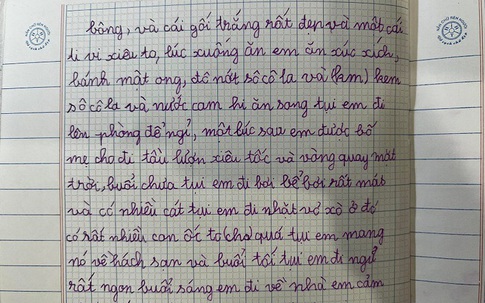 bông, và cái gối trắng rất đẹp và một cái
ti vi xiêu to, lúc xuống ăn em ăn xúc xích,
bánh mật ong, đô nát sô cô la và (kem) kem
sô cô la và nước cam hi ăn song tụi em đi
lên phòng để ngỉ, một lúc sau em được bố
mẹ cho đi tầu lượn xiêu tốc và vòng quay mặt
trời, buổi chưa tụi em đi bơi bể bơi rất mát
và có nhiều cát tụi em đi nhặt vỏ xò ở đó
có rất nhiều con ốc to chà quá tụi em mang
nó về khách sạn và buổi tối tụi em đi ngủ
rất ngon buổi sáng em đi về nhà em cảm